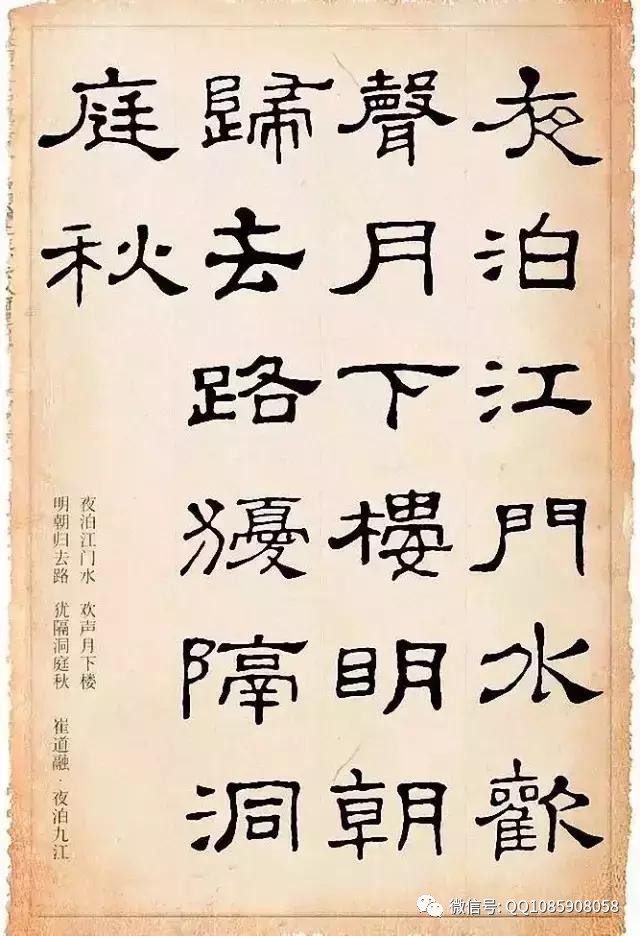 夜泊江門水歡
聲月下樓明朝
歸去路獶隔洞
庭秋
夜泊江门水 欢声月下楼
明朝归去路 犹隔洞庭秋 崔道融·夜泊九江
微信号: QQ1085908058